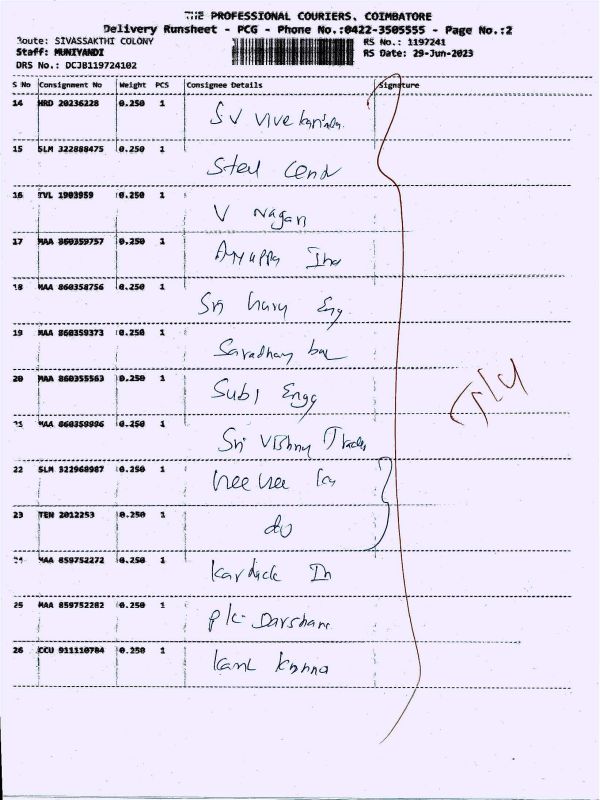 THE PROFESSIONAL COURIERS. COIMBATORE
Delivery Runsheet - PCG - Phone No.:0422-3505555 - Page No.:2
Route: SIVASSAKTHI COLONY
RS No.: 1197241
Staff: MUNIYANDI
RS Date: 29-Jun-2023
DRS No.: DCJB119724102
S No Consignment No Weight PCS Consignee Details Signature
14 HRD 20236228 0.250 1 SV
15 SLM 322888475 0.250 1 Steel
16 TVL 1903959 0.250 1 V Nagan
17 MAA 860359757 0.250 1 Ayyappa
18 MAA 860358756 0.250 1 Sri Eng
19 MAA 860359373 0.250 1
20 MAA 860355563 0.250 1 Engg
21 MAA 860359996 0.250 1 Sri Vishnu Traders
22 SLM 322968987 0.250 1
23 TEN 2012253 0.250 1 do
24 MAA 859752272 0.250 1
25 MAA 859752282 0.250 1 PK. Darshan
26 CCU 911110784 0.250 1